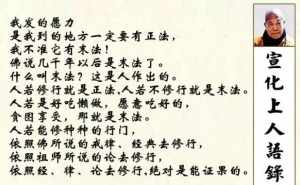 我发的愿力
是我到的地方一定要有正法，
我不准它有末法！
佛说几千年以后是末法了。
什么叫末法？这是人作出的。
人若修行就是正法，人若不修行就是末法。
人若是好吃懒做，愿意吃好的，
贪图享受，那就是末法。
人若能修种种的行门，
依照佛所说的戒律、经典去修行，
依照祖师所说的论去修行，
依照经、律、论去修行，绝对是能证果的。
宣化上人語錄